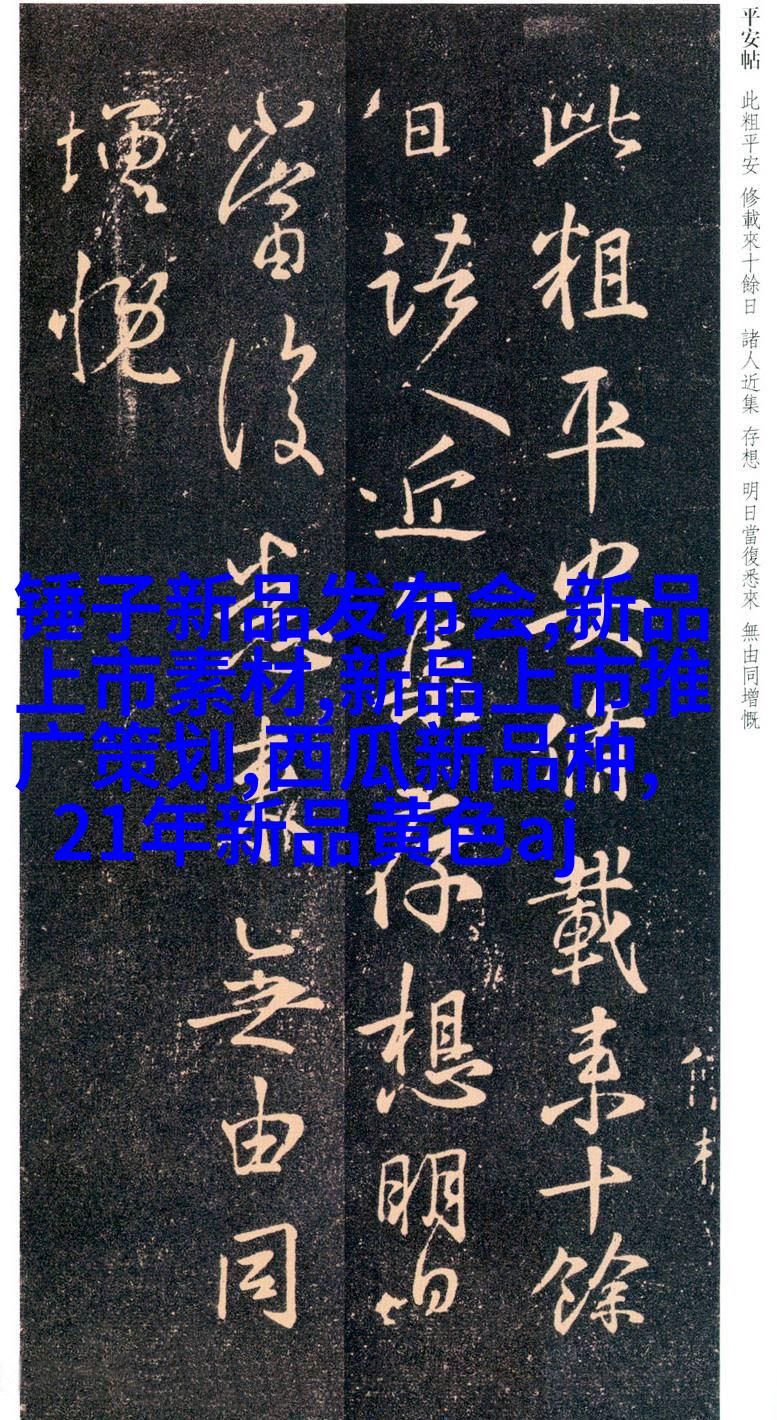 平安帖 此粗平安 修載來十餘日 諸人近集 存想 明日當復悉來 無由同增慨
此粗平安脩載来十餘
日諸人近集存想明日
當復悉来無由同
增慨
锤子新品发布会,新品
上市素材,新品上市推
广策划,西瓜新品种,
21年新品黄色aj